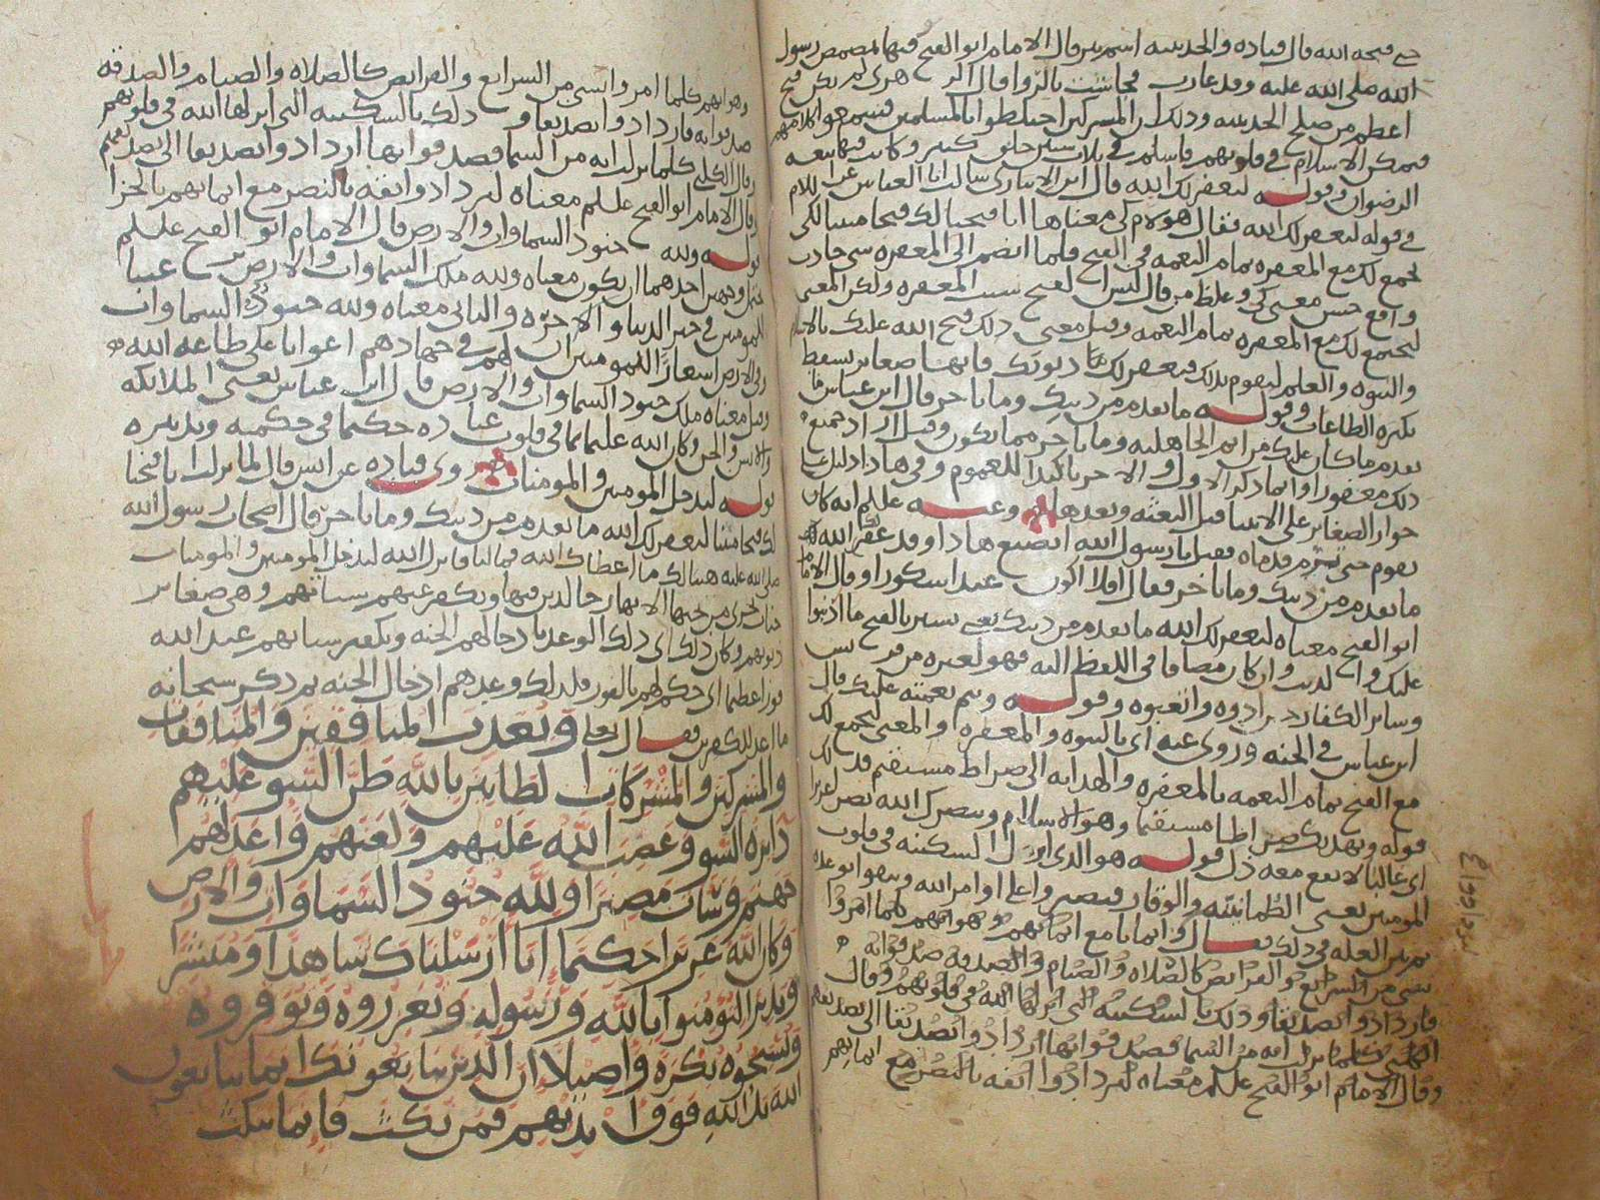 فتحه الله قال قتاده والحديبيه اسم بير قال الامام ابو الفتح فيها تمضمض رسول
الله صلى الله عليه وقد غارت فجاشت بالروا قال الزهري لم يكن فتح
اعظم من صلح الحديبيه وذلك ان المشركين اختلطوا بالمسلمين فسمعوا كلامهم
فتمكن الاسلام في قلوبهم فاسلم في ثلاث سنين خلق كثير وكانت فيها بيعه
الرضوان وقوله ليغفر لك الله قال ابن الانباري سالت ابا العباس عن اللام
في قوله ليغفر لك الله فقال هو لام كي معناها انا فتحنا لك فتحا مبينا لكي
يجمع لك مع المغفره تمام النعمه في الفتح فلما انضم الى المغفره شي حادث
واقع حسن معنى كي وغلط من قال ليس الفتح سبب المغفره ولكن المعنى
ليجتمع لك مع المغفره تمام النعمه وقيل معنى ذلك فتح الله عليك بالاسلام
والنبوه والعلم ليقوم بذلك فيغفر لك بها ذنوبك فانها صغاير تسقط
بكثره الطاعات وقوله ما تقدم من ذنبك وما تاخر قال ابن عباس ما
تقدم ما كان عليك من اثم الجاهليه وما تاخر مما يكون وقيل اراد جميع
ذلك مغفورا وانما ذكر الاول والاخر تاكيدا للعموم وفي هاذا دليل على
جواز الصغاير على الانبيا قبل البعثه وبعدها وعنه عليلم انه كان
يقوم حتى ترم قدماه فقيل يا رسول الله اتصنع هاذا وقد غفر الله لك
ما تقدم من ذنبك وما تاخر فقال افلا اكون عبدا شكورا وقال الامام
ابو الفتح معناه ليغفر لك الله ما تقدم من ذنبك يعني يستر بالفتح ما اذنبوا
عليك واليك وان كان مضافا في اللفظ اليه فهو لغيره من قريش
وساير الكفار حين اذوه واتعبوه وقوله ويتم نعمته عليك قال
ابن عباس في الجنه وروي عنه اي بالنبوه والمغفره والمعنى ليجمع لك
مع الفتح تمام النعمه بالمغفره والهدايه الى صراط مستقيم فذلك
قوله ويهديك صراطا مستقيما وهو الاسلام وينصرك الله نصرا عزيزا
اي غالبا لا يقع معه ذل قوله هو الذي انزل السكينه في قلوب
المومنين يعني الطمانينه والوقار
ثم بين العله في ذلك فقال ايمانا مع ايمانهم وهو انهم كلما امروا
بشي من الشرايع والفرايض كالصلاه والصيام والصدقه صدقوا به
فازدادوا تصديقا وذلك بالسكينه التي انزلها الله في قلوبهم وقال
الكلبي كلما نزلت ايه من السما فصدقوا بها ازدادوا تصديقا الى تصديقهم
وقال الامام ابو الفتح عليلم معناه ليزدادوا ثقه بالنصر مع ايمانهم
وهو انهم كلما امروا بشي من الشرايع والفرايض كالصلاه والصيام والصدقه
صدقوا به فازدادوا تصديقا وذلك بالسكينه التي انزلها الله في قلوبهم
وقال الكلبي كلما نزلت ايه من السما فصدقوا بها ازدادوا تصديقا الى تصديقهم
وقال الامام ابو الفتح عليلم معناه ليزدادوا ثقه بالنصر مع ايمانهم بالجزا
قوله ولله جنود السماوات والارض قال الامام ابو الفتح عليلم
يحتمل وجهين احدهما ان يكون معناه ولله ملك السماوات والارض ترغيبا
للمومنين في خير الدنيا والاخره والثاني معناه ولله جنود السماوات
والارض اشعارا للمومنين ان لهم في جهادهم اعوانا على طاعه الله
وقيل معناه ملك جنود السماوات والارض قال ابن عباس يعني الملائكه
والانس والجن وكان الله عليما بما في قلوب عباده حكيما في حكمه وتدبيره
قوله ليدخل المومنين والمومنات روى قتاده عن انس قال لما نزلت انا فتحنا
لك فتحا مبينا ليغفر لك الله ما تقدم من ذنبك وما تاخر قال اصحاب رسول الله
صلى الله عليه هنيا لك ما اعطاك الله فما لنا فانزل الله ليدخل المومنين والمومنات
جنات تجري من تحتها الانهار خالدين فيها ويكفر عنهم سياتهم وهي صغاير
ذنوبهم وكان ذلك اي ذلك الوعد بادخالهم الجنه وتكفير سياتهم عند الله
فوزا عظيما اي حكم لهم بالفوز فلذلك وعدهم ادخال الجنه ثم ذكر سبحانه
ما اعد للكافرين فقال تعالى ويعذب المنافقين والمنافقات
والمشركين والمشركات الظانين بالله ظن السو عليهم
دايره السو وغضب الله عليهم ولعنهم واعد لهم
جهنم وسات مصيرا ولله جنود السماوات والارض
وكان الله عزيزا حكيما انا ارسلناك شاهدا ومبشرا
ونذيرا لتومنوا بالله ورسوله وتعزروه وتوقروه
وتسبحوه بكره واصيلا ان الذين يبايعونك انما يبايعون
الله يد الله فوق ايديهم فمن نكث فانما ينكث